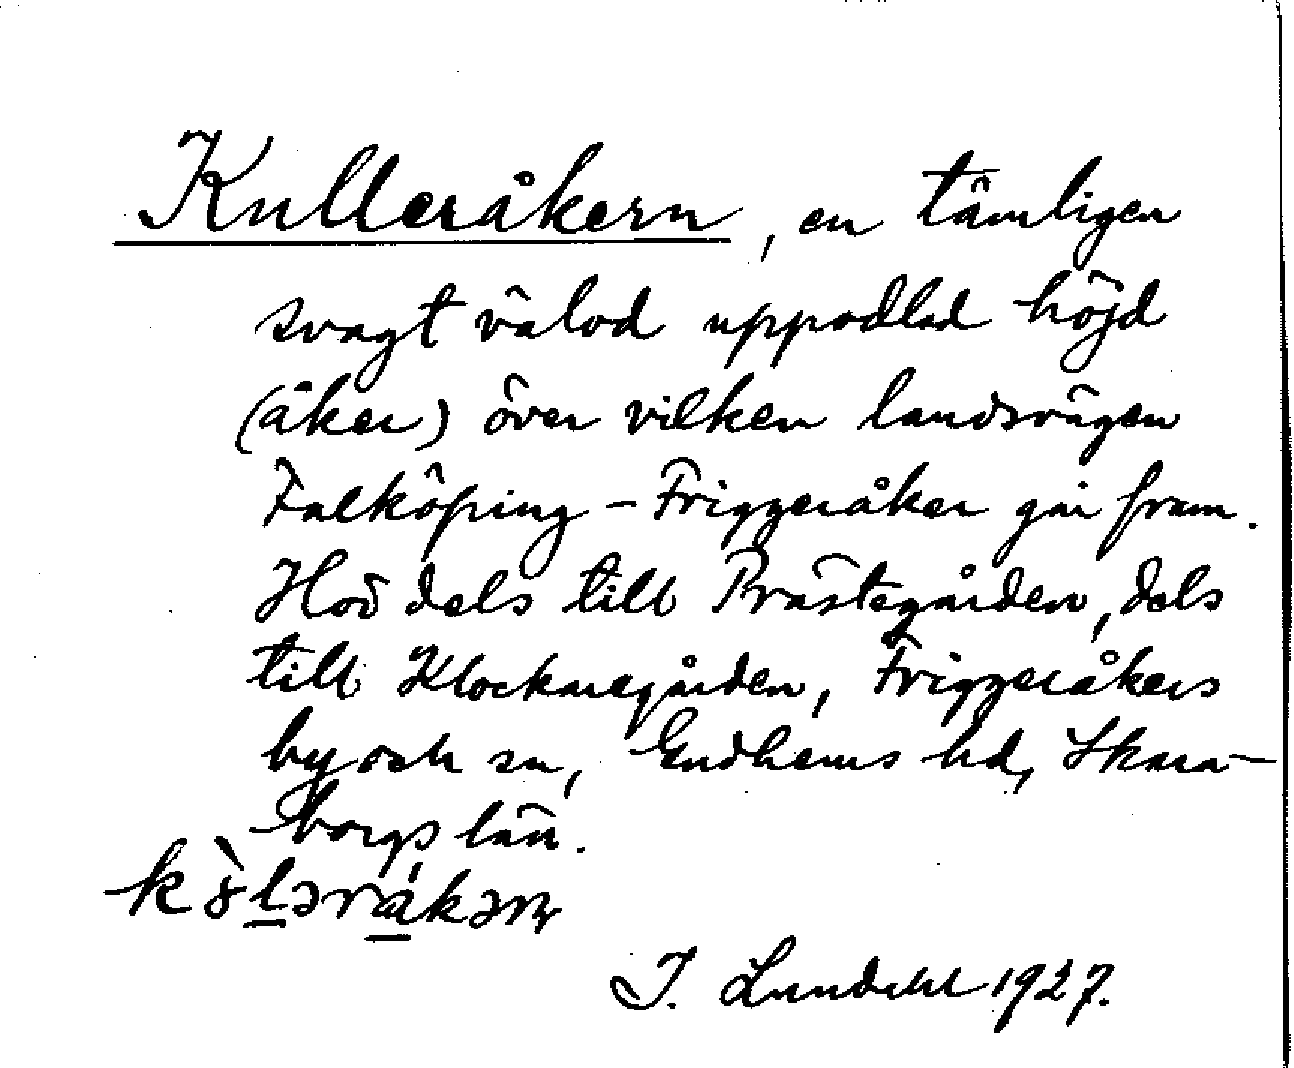 Kulleråkern, en tämligen
svagt välvd uppodlad höjd
(åker) över vilken landsvägen
Falköping – Friggeråker går fram.
Hör dels till Prästegården, dels
till Klockaregården, Friggeråkers
by och sn, Gudhems hd, Skara-
borgs län.
I. Lundahl 1927.